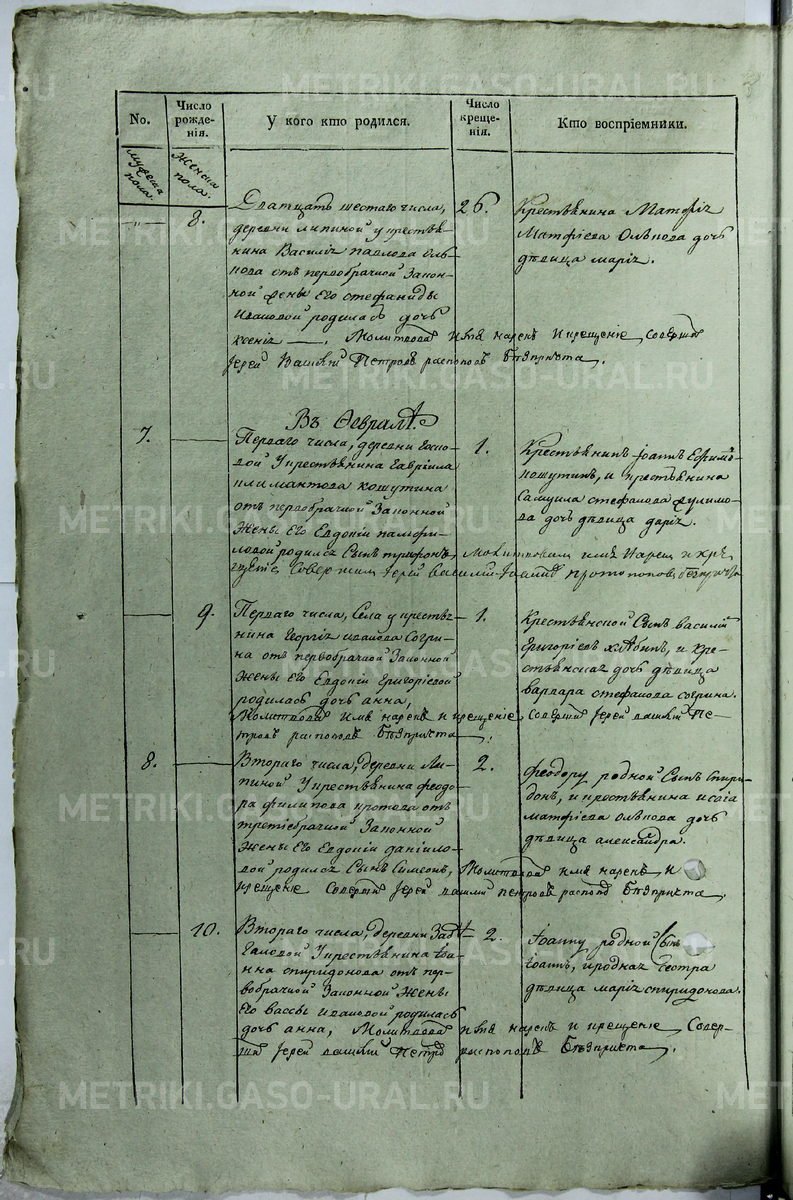 No.
Число рожде-нія.
У кого кто родился.
Число креще-нія.
Кто воспріемники.
мужеска пола.
Женска пола.
8.
Дватцать шестаго числа,
деревни липиной у крестья-
нина Василія павлова Оль-
кова отъ первобрачной Закон-
ной жены Его стефаниды
Ивановой родилась дочь
ксенія, Молитвовалъ Имя нарекъ И крещеніе совершилъ
Іерей Василій Петровъ распоповъ Безпричта.
26.
Крестьянина Матфія
Матфіева Олькова дочь
дѣвица марія.
Въ Февралѣ
7.
Перваго числа, деревни
вой Укрестьянина Гавріила
Кокшутина
отъ первобрачной Законной
Жены Его Евдокіи памфи-
ловой родился сынъ трифонъ, Молитвовалъ имя Нарекъ и кре
щеніе Совершилъ Іерей Василій протопоповъ безпричта
1.
Крестьянинъ Іоаннъ
Кокшутинъ, и крестьянина
Самуила стефанова
ва дочь дѣвица дарія.
9.
Перваго числа, Села у крестья-
нина Георгія иванова Согри-
на отъ первобрачной Законной
Жены Его Евдокіи Григоріевой
родилась дочь анна,
Молитвовалъ Имя нарекъ и крещеніе Совершилъ Іерей василій Пе-
тровъ распоповъ Безпричта.
1.
Крестьянской Сынъ василій
Григоріевъ и кре-
стьянская дочь дѣвица
варвара стефанова согрина.
8.
Втораго числа, деревни Ли-
пиной Укрестьянина феодо-
ра филипова кротова отъ
третіебрачной Законной
Жены Его Евдокіи даніило-
вой родился Сынъ Симеонъ, Молитвовалъ имя нарекъ, И
крещеніе Совершилъ Іерей василій петровъ распоповъ Безпричта.
2.
Феодору родной Сынъ Спири-
донъ, и крестьянина исаіа
матфіева Олькова дочь
дѣвица александра.
10.
Втораго числа, деревни
Галовой Укрестьянина Іоа-
нна спиридонова отъ пер-
вобрачной Законной Жены
Его вассы ивановой родилась
дочь анна, Молитвовалъ имя нарекъ и крещеніе Совер-
шилъ Іерей василій Петровъ распоповъ Безпричта.
2.
Іоанну родной Сынъ
Іоаннъ, иродная Сестра
дѣвица марія спиридонова.
METRIKI.GASO-URAL.RU